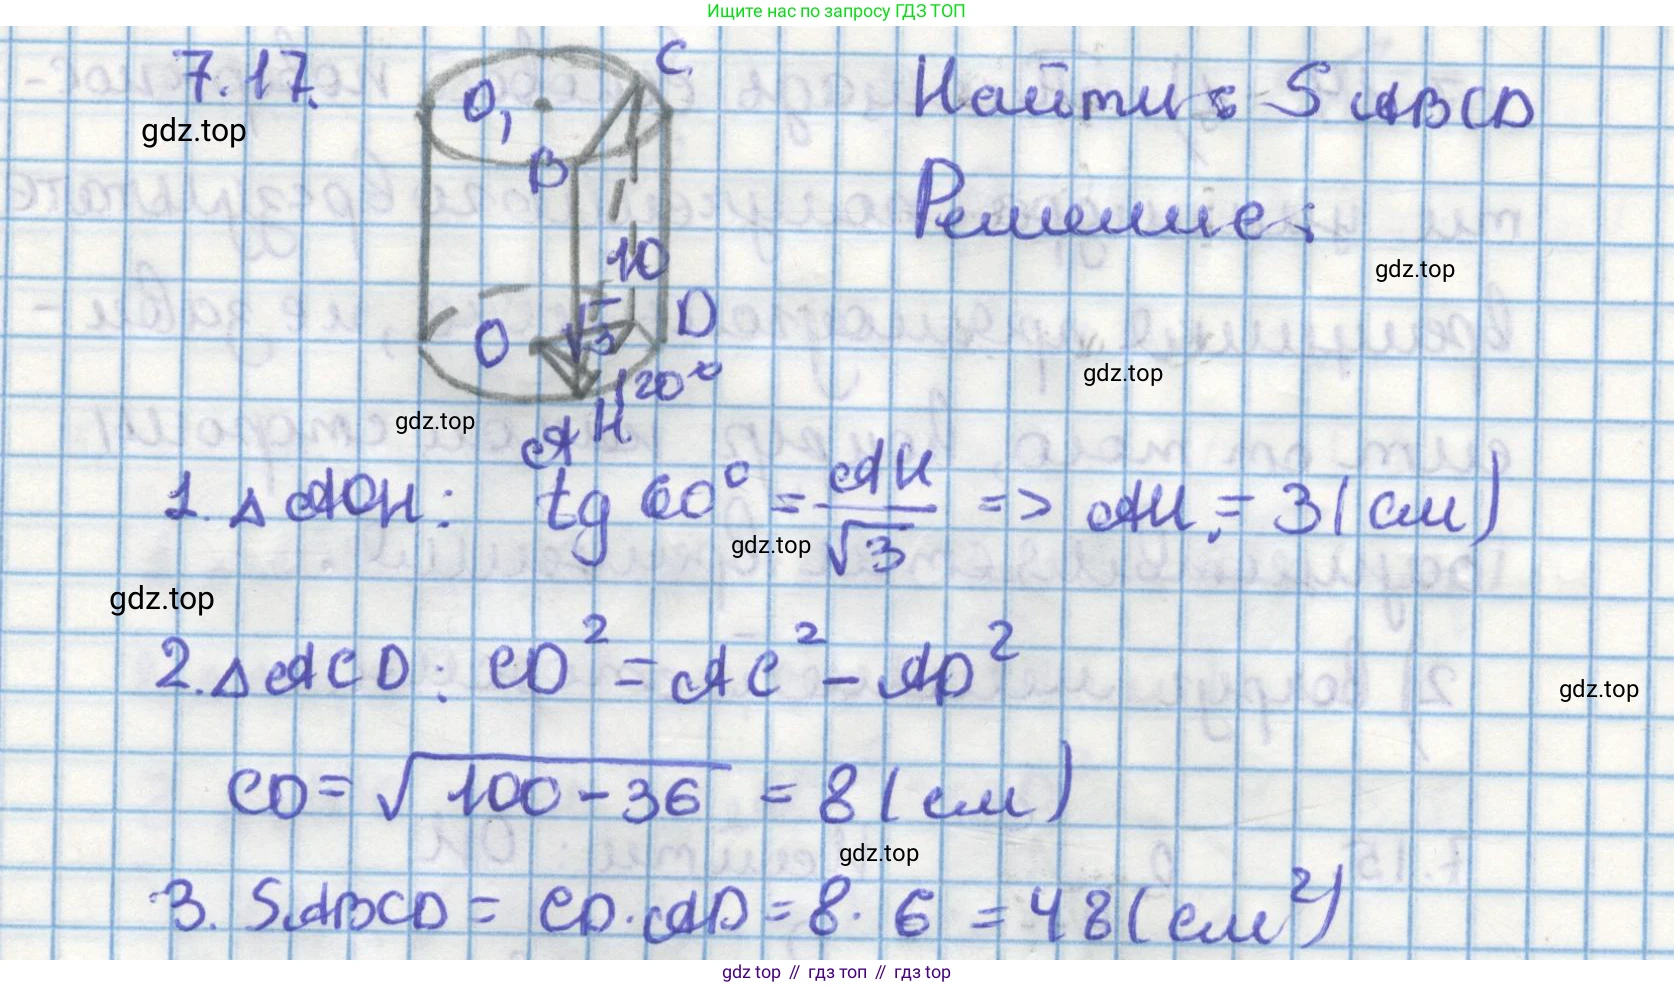 Ищите нас по запросу ГДЗ ТОП
7.17.
gdz.top
C
O₁
B
10
√3
O
D
120°
A
H
Найти: SABCD
Решение:
gdz.top
gdz.top
gdz.top
1. △AOH: tg 60° = AH/√3 => AH = 3 (см)
gdz.top
gdz.top
2. △ACD: CD² = AC² - AD²
gdz.top
CD = √100-36 = 8 (см)
gdz.top
3. SABCD = CD · AD = 8 · 6 = 48 (см²)
gdz top // гдз топ // гдз top